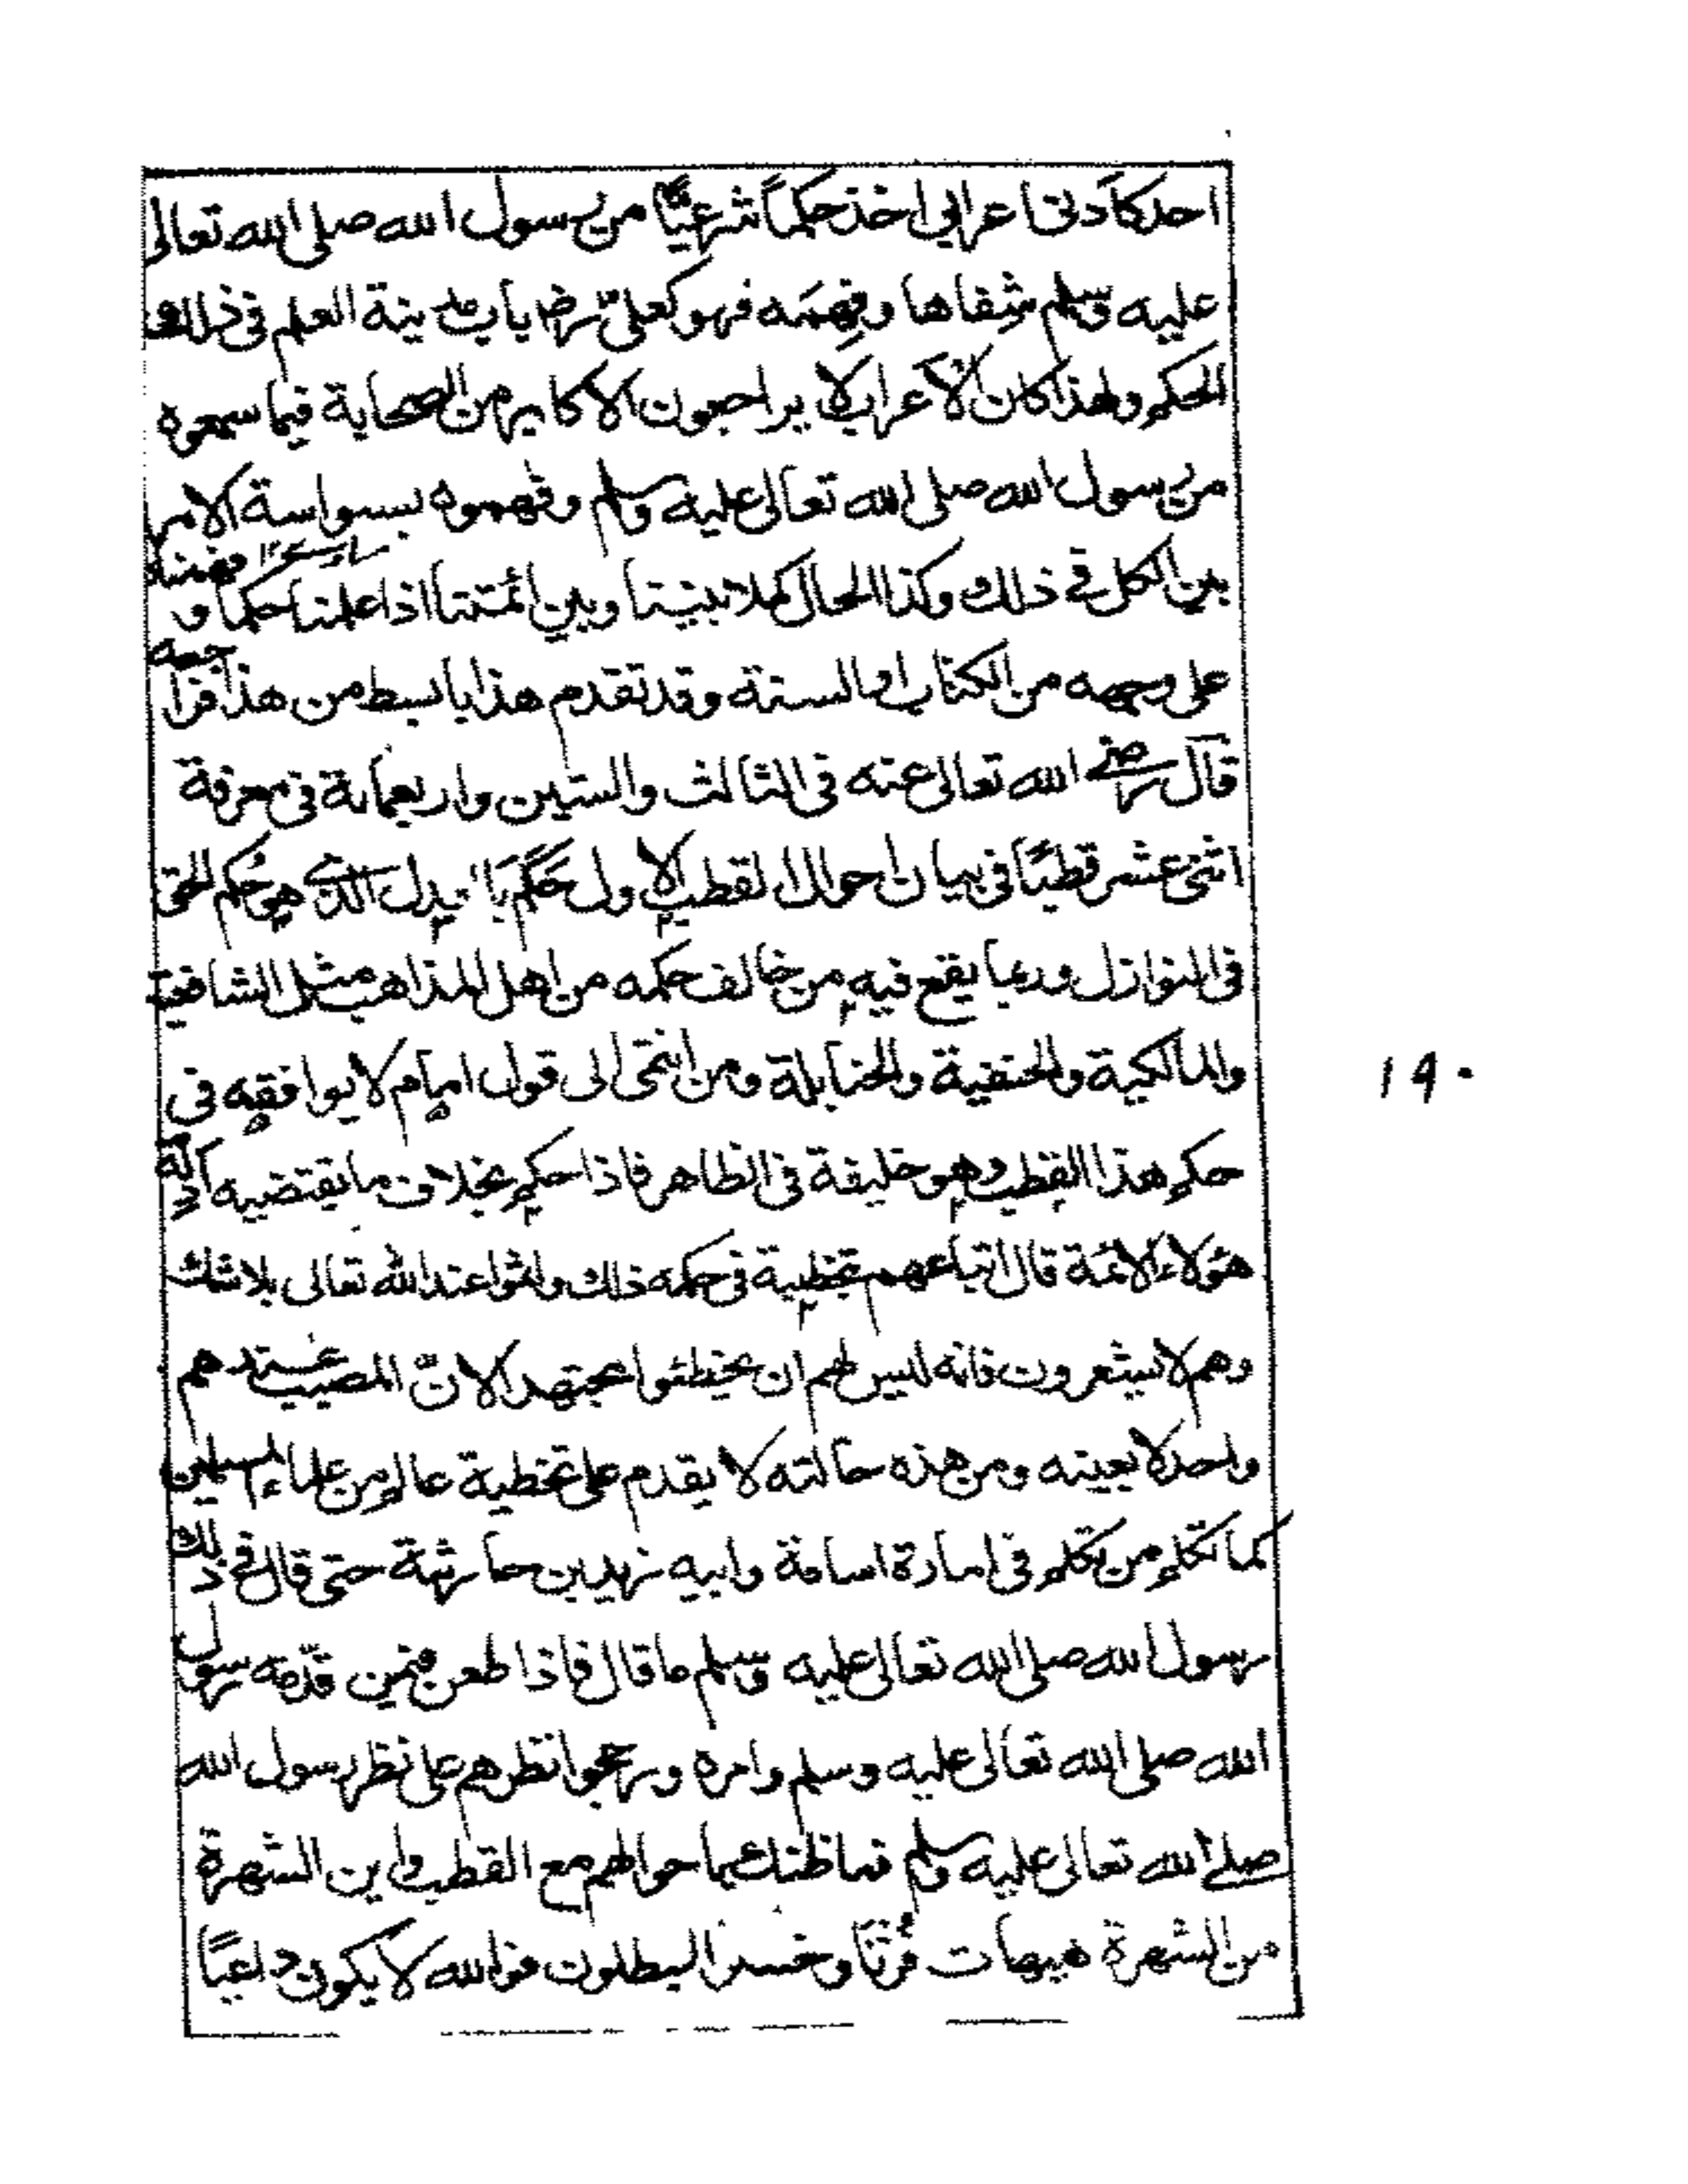 احد كأدنى اعرابي اخذ حكماً شرعيّاً من رسول الله صلى الله تعالى
عليه وسلم شفاها وفهمَه فهو كعليّ رض باب مدينة العلم في ذلك
الحكم ولهذا كان الأعراب لا يراجعون الاكابر من الصحابة فيما سمعوه
من رسول الله صلى الله تعالى عليه وسلم وفهموه بسواسة الامر
بين الكل في ذلك وكذا الحال كملا بيننا وبين ائمتنا اذا علمنا حكما و فهمناه
على وجهه من الكتاب او السنة وقد تقدم هذا بابسط من هذا فراجعه
قال رضي الله تعالى عنه في الثالث والستين واربعمائة في معرفة
اثنى عشر قطبًا في بيان احوال القطب الاول حَكَم بالعدل الذي هو حُكم الحق
في النوازل وربما يقع فيه من خالف حكمه من اهل المذاهب مثل الشافعية
والمالكية والحنفية والحنابلة ومن انتمى الى قول امام لا يوافقه في
حكم هذا القطب وهو خليفة في الظاهر فاذا حكم بخلاف ما يقتضيه ادلة
هؤلاء الائمة قال اتباعهم بتخطية في حكمه ذلك واثموا عند الله تعالى بلا شك
وهم لا يشعرون فانه ليس لهم ان يخطئوا مجتهدا لانّ المصيب عندهم
واحد لا بعينه ومن هذه حالته لا يقدم على تخطية عالم من علماء المسلمين
كما تكلم من تكلم في امارة اسامة وابيه زيد بن حارثة حتى قال في ذلك
رسول الله صلى الله تعالى عليه وسلم ما قال فاذا طعن فيمن قدّمه رسول
الله صلى الله تعالى عليه وسلم وامره ورجحوا نظرهم على نظر رسول الله
صلى الله تعالى عليه وسلم فما ظنك بما حوالهم مع القطب واين الشهرة
من الشهرة هيهات فُزنَا وخسر المبطلون فوالله لا يكون داعيًا
١٩٠